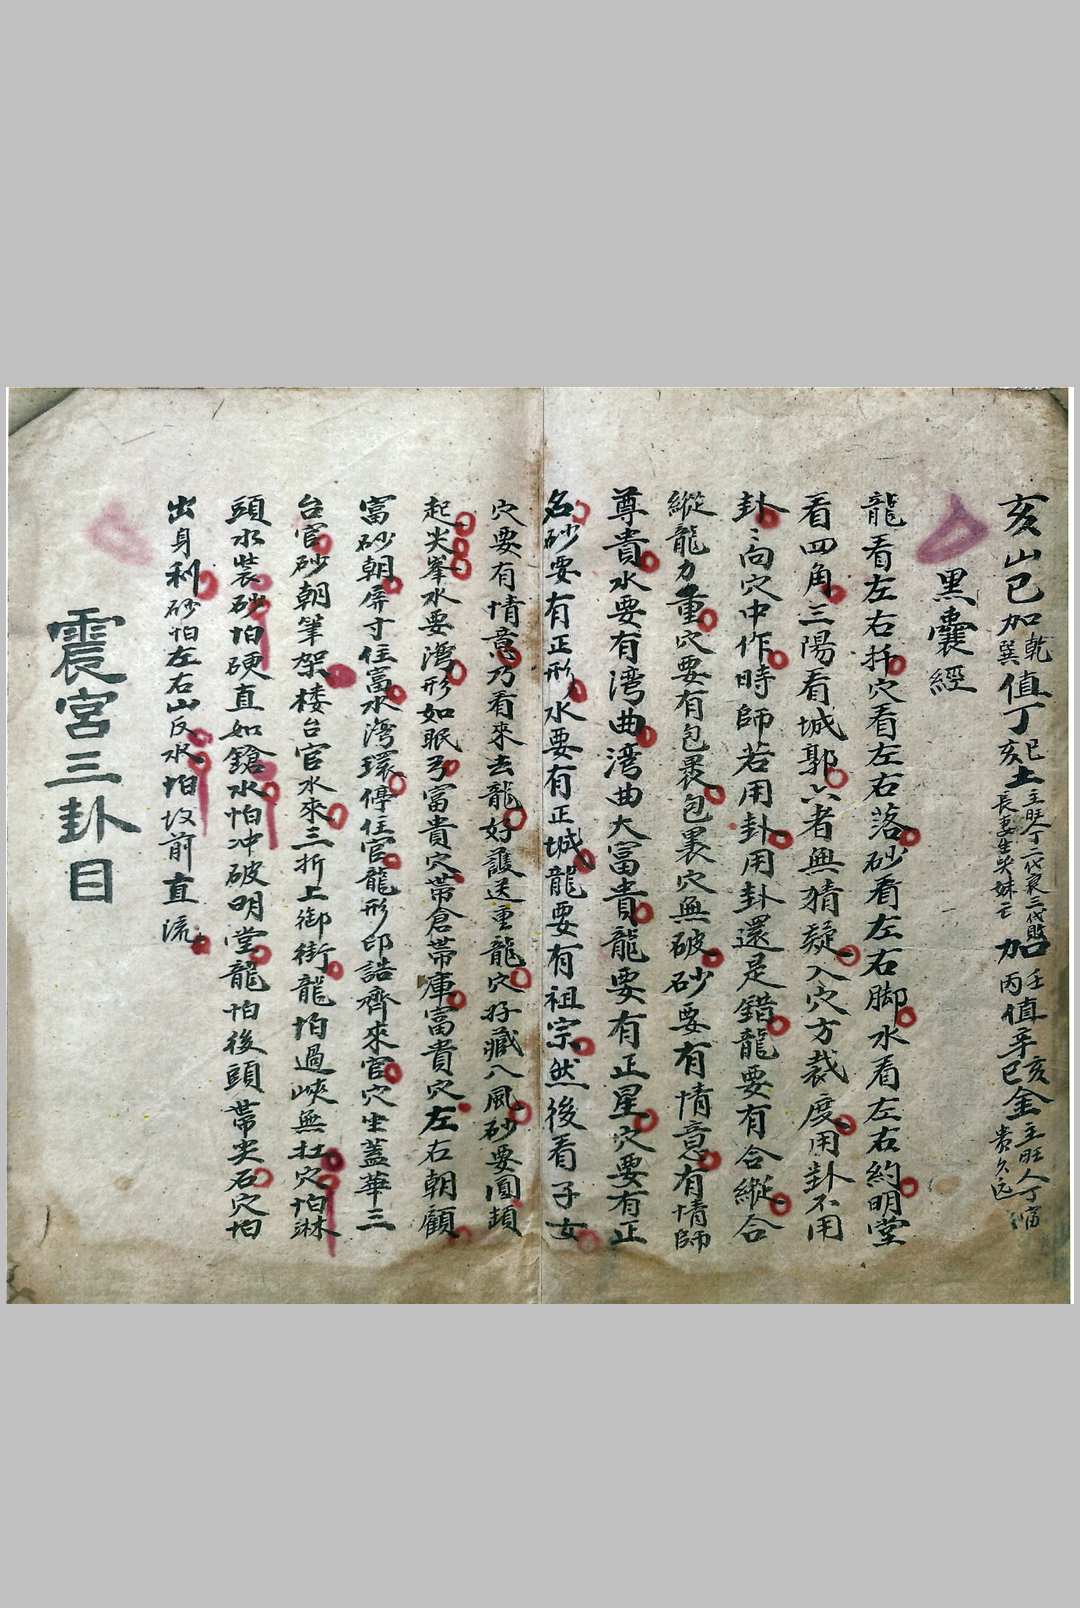 亥山巳加乾巽值丁巳亥土主旺人丁二代衰三代敗長妻生 妹亡加壬丙值辛亥巳金主旺人丁富貴久远
黑囊經
龍看左右托穴看左右落砂看左右脚水看左右約明堂
看四角三陽看城郭六者無猜疑入穴方裁度用卦不用
卦〻向穴中作時師若用卦用卦還是錯龍要有合縱合
縱龍力重穴要有包裹包裹穴無破砂要有情意有情師
尊貴水要有湾曲湾曲大富貴龍要有正星穴要有正
名砂要有正形水要有正城龍要有祖宗然後看子女
穴要有情意乃看來去龍好護送重龍穴好藏八風砂要圓頭
起尖峯水要湾形如眠弓富貴穴帶倉帶庫富貴穴左右朝顧
富砂朝屏寸住富水湾環停住官龍形印誥齊來官穴坐蓋華三
台官砂朝筆架楼台官水來三折上御街龍怕過峽無扛穴怕淋
頭水裝砂怕硬直如鎗水怕冲破明堂龍怕後頭帶尖石穴怕
出身利砂怕左右山反水怕坟前直流
震宮三卦目